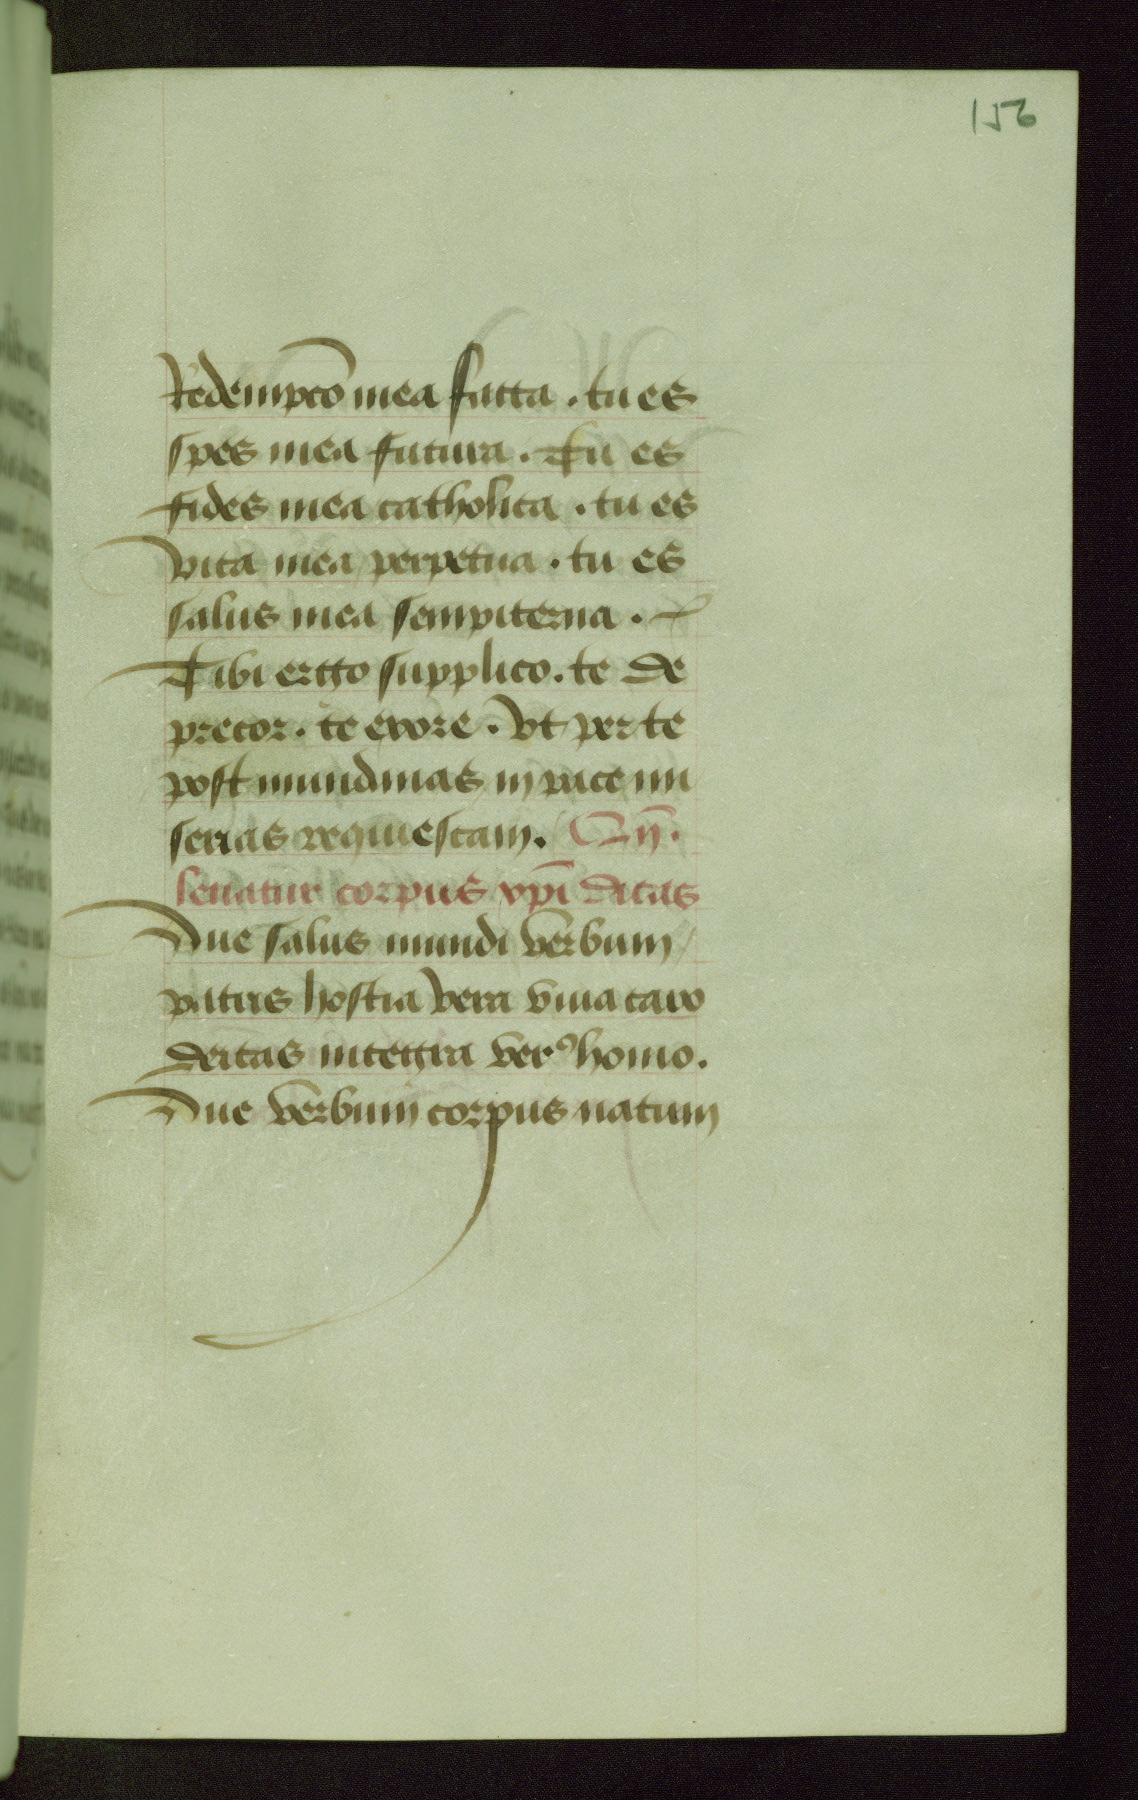 156
Redempcō mea facta . tu es
spes mea futura . Tu es
fides mea catholica . tu es
vita mea perpetua . tu es
salus mea sempiterna .
Tibi ergo supplico . te de
precor . te exore . Vt per te
post mundinas in pace mi
serias requiescam . Qn̄ .
leuatur corpus xp̄i dicas
Aue salus mundi verbum
patris hostia vera viua caro
deitas integra verꝰ homo .
Aue verbum corpus natum